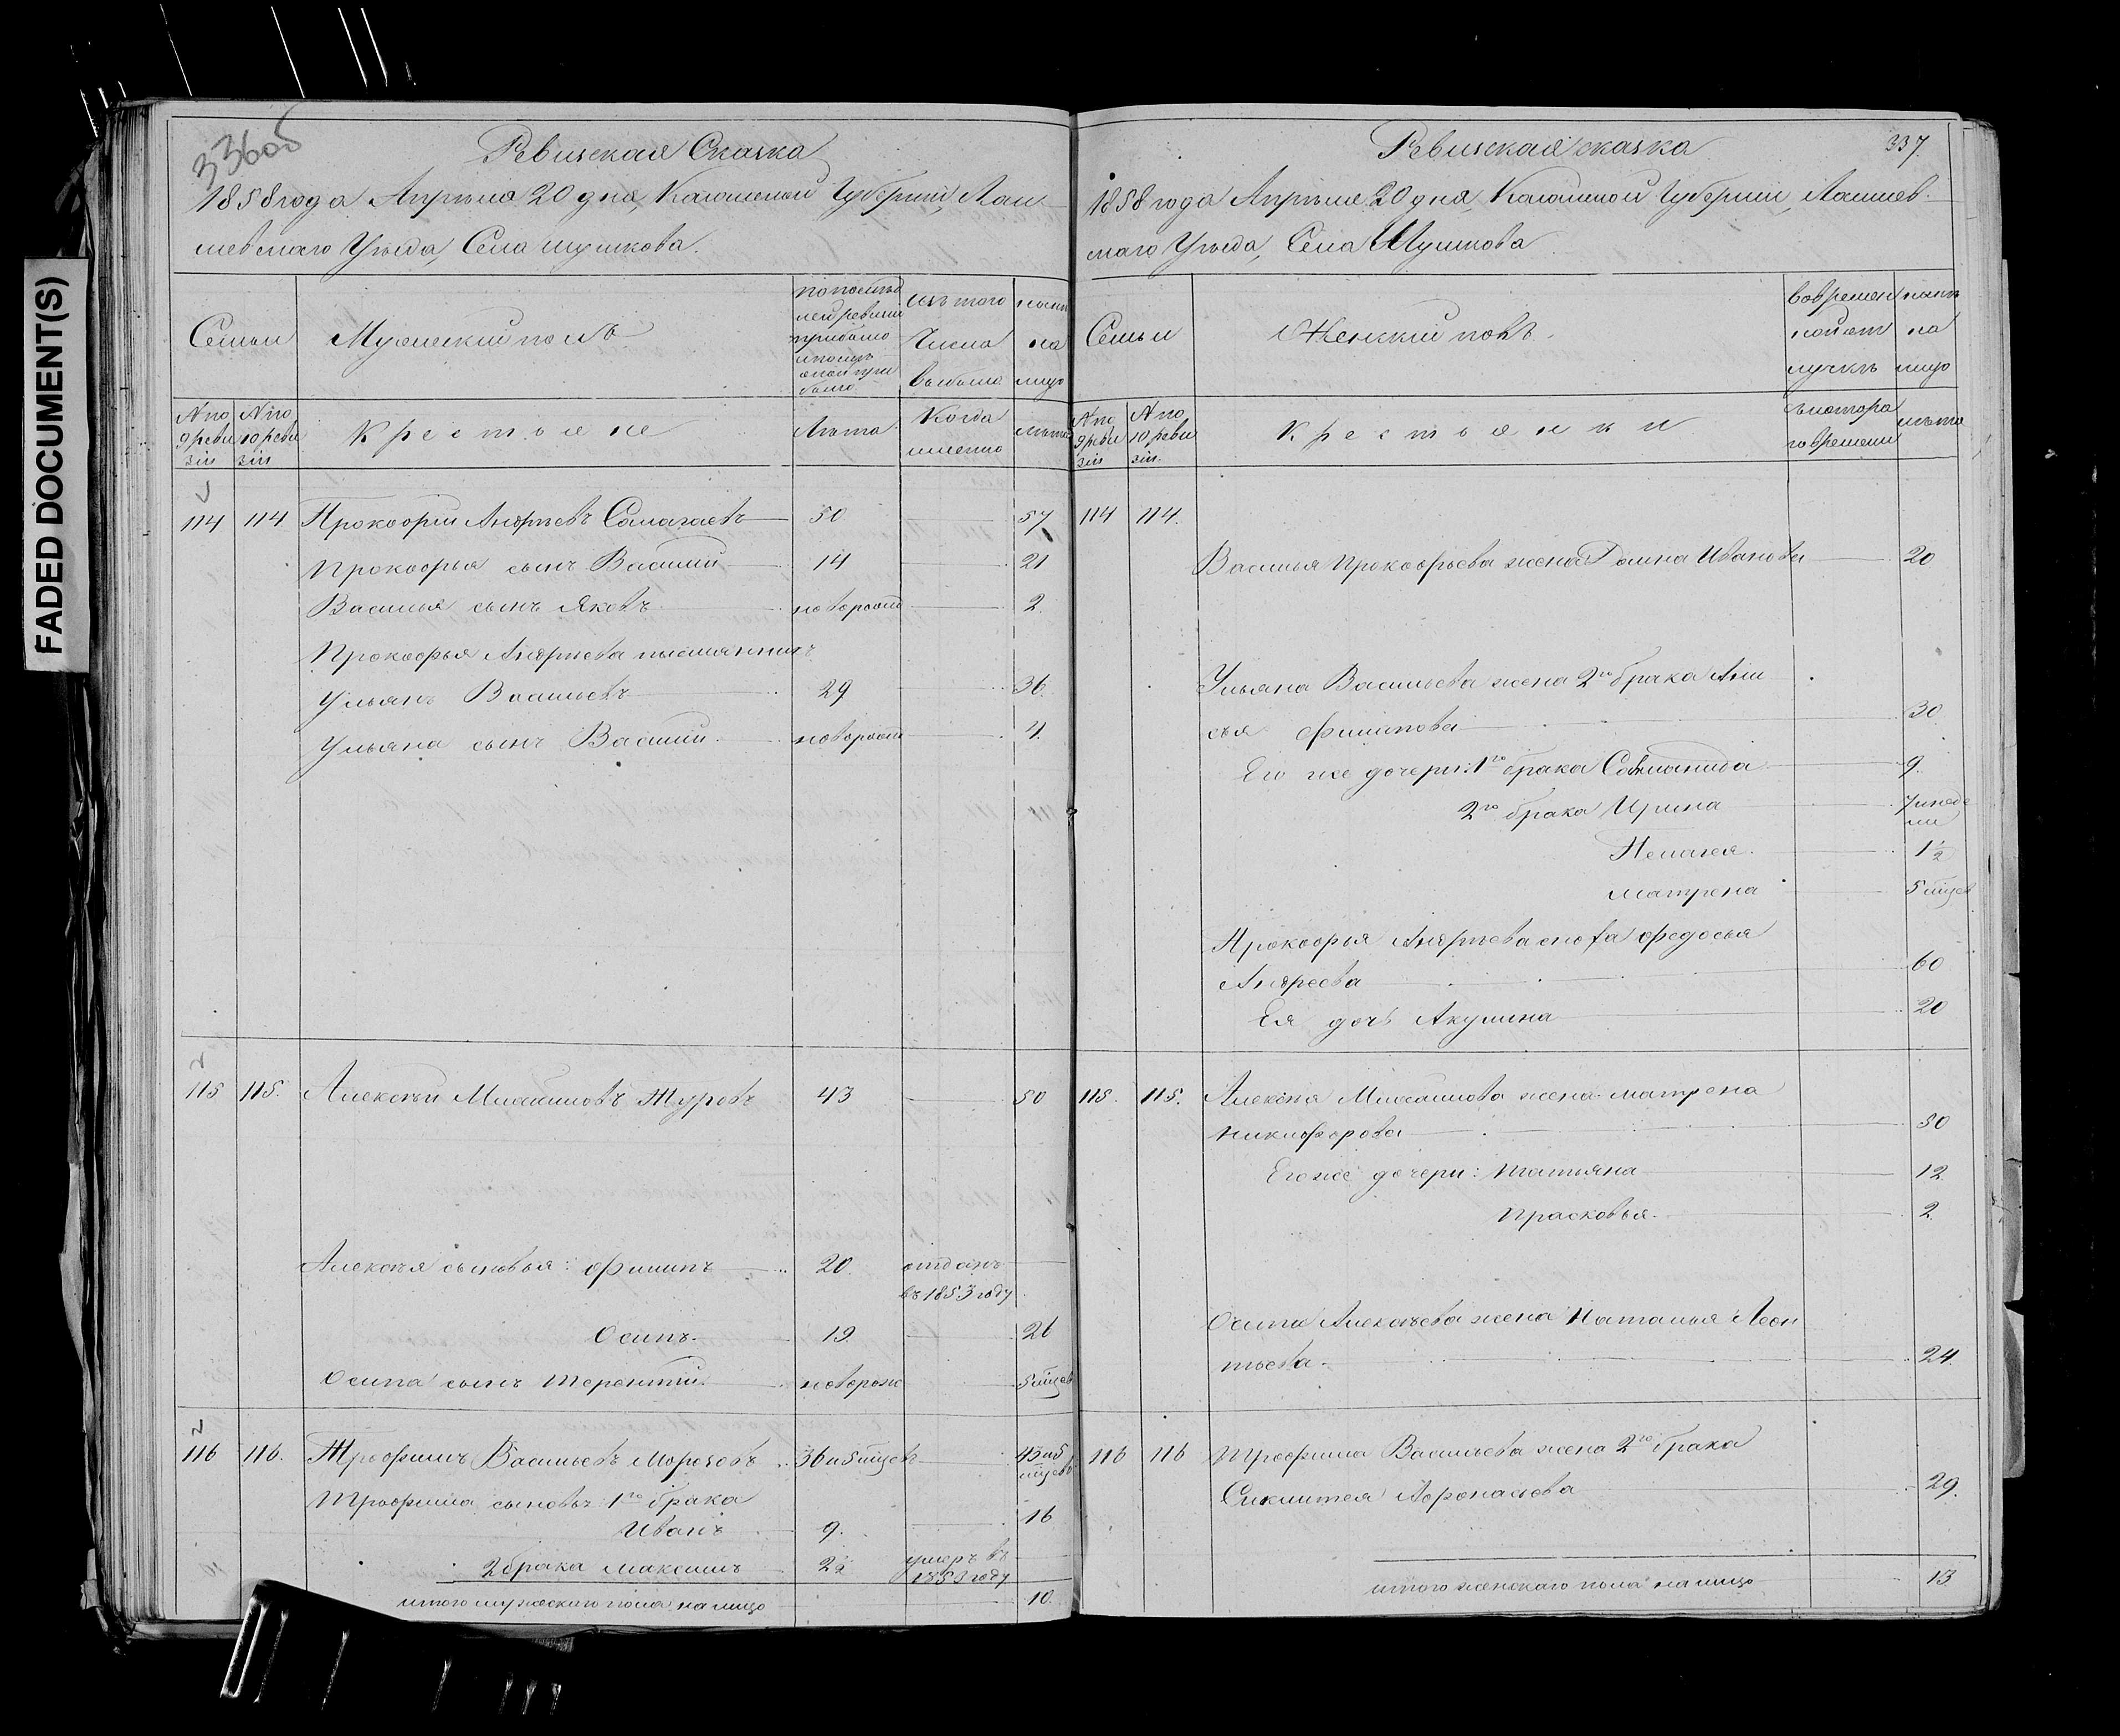 FADED DOCUMENT(S)
336об
Ревизская Сказка
1858 года Апреля 20 дня, Казанской Губернии, Лаи
шевскаго Уезда, Села Шушкова.
Семьи
Мужеский полъ
по послед
ней ревизии
состояло
было
изъ того
числа
выбыло
ныне
на
лицо
№ по
9 реви
зіи
№ по
10 реви
зіи
Крестьяне
Лета
Когда
именно
лета
114 114. Прокофій Андреевъ 50 57
Прокофья сынъ Василій 14 21
Василья сынъ Яковъ новорожд 2.
Прокофья Андреева племянникъ
Ульянъ Васильевъ 29 36.
Ульяна сынъ Василій новорожд 4.
115 115. Алексей Михайловъ Журовъ 43 50
Алексея сыновья: Филипъ 20. отданъ
въ 1853 году
Осипъ. 19. 26
Осипа сынъ Терентій новорож 5 м҃цев
116 116. Трофимъ Васильевъ Морозовъ 36 и 5 м҃цев 43 и 5
м҃цевъ
Трофима сыновья: 1го брака
Иванъ 9. 16
2 брака Максимъ 2½ умеръ въ
1853 году
итого мужескаго пола на лицо 10.
Ревизская сказка 337
1858 года Апреля 20 дня, Казанской Губерніи, Лаишев
скаго Уезда, Села Шушкова
Семьи
Женскій полъ.
во времен
ной от
лучке
ныне
на
лицо
№ по
9 реви
зіи
№ по
10 реви
зіи.
Крестьянки
съ котора
го времени
лета
114 114.
Василья Прокофьева жена Иванова 20
Ульяна Васильева жена 2го брака Ани
сья Филипова 30
Его же дочери: 1го брака 9.
2го брака Ирина 7 и неде
ли
Пелагея. 1½
Матрена 5 м҃цев
Прокофья Андреева сноха Федосья
Андреева 60
Ея дочь Акулина 20
115. 115. Алексея Михайлова жена Матрена
Никифорова 50
Его же дочери: Татьяна 12
Прасковья. 2
Осипа Алексеева жена Наталья Леон
тьева. 24
116 116 Трофима Васильева жена 2го брака
Афонасьева 29.
итого женскаго пола на лицо 13